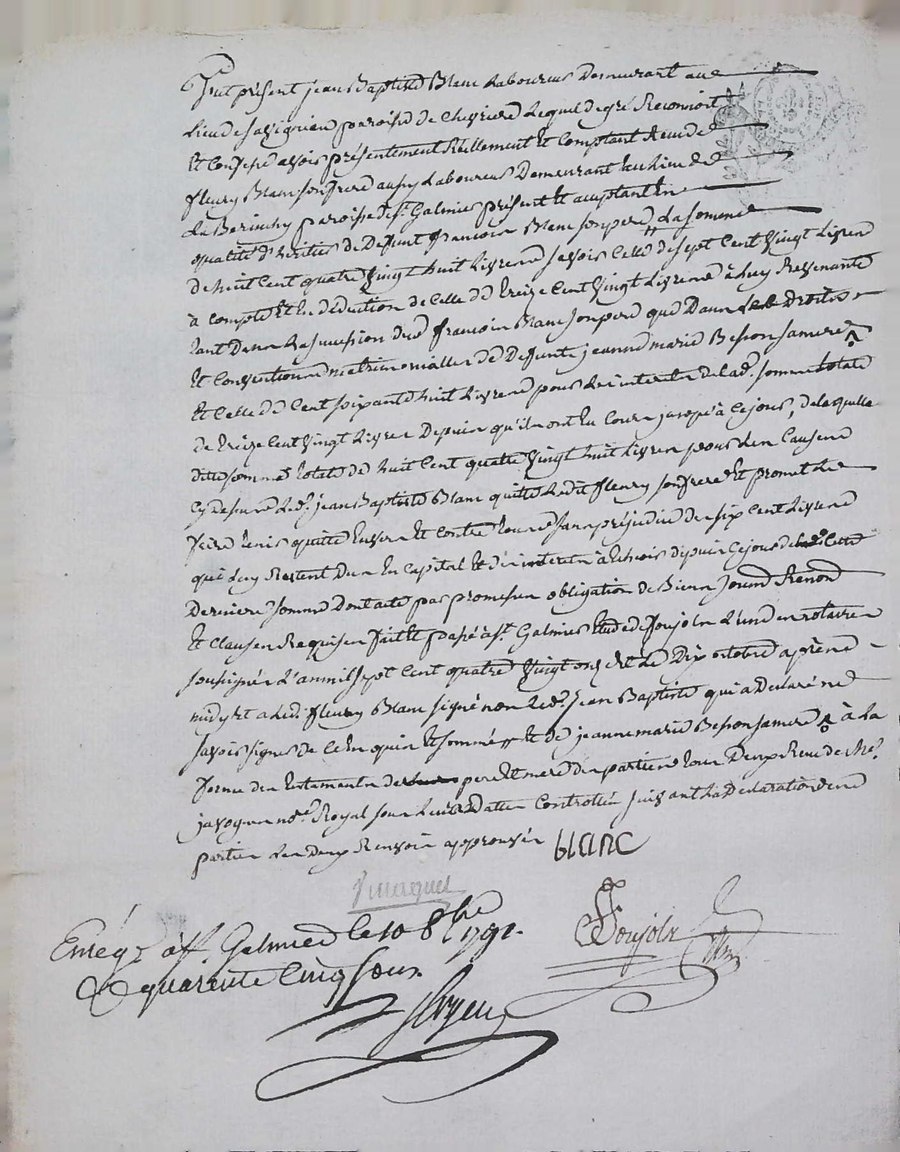 Fut présent jean Baptiste Blanc Laboureur Demeurant au
Lieu de savignieu paroisse de Chevriere Lequel de gré Reconnoit
et Confesse avoir présentement Réellement et Comptant Reçu de
fleury Blanc son frere aussy Laboureur Demeurant au Lieu de
La paroisse de st. Galmier présent et acceptant en
qualité d'héritier de Deffunt francois Blanc son pere La somme
de huit Cent quatre vingt huit Livres savoir Celle de sept Cent vingt Livres
à compte et en déduction de Celle de treize Cent vingt Livres à luy Revenante
tant Dans La succession dud. francois Blanc son pere que Dans Les Droits
et Conventions matrimonialles de Deffunte jeanne marie Besson sa mere
et Celle de Cent soixante huit Livres pour Les interets de lad. somme totale
de treize Cent vingt Livres Depuis qu'ils ont eu Cours jusqu'à Ce jour, de laquelle
ditte somme totale de huit Cent quatre vingt huit Livres pour Les Causes
Cy dessus Led. jean Baptiste Blanc quitte Ledit fleury son frere et promet Le
faire tenir quitte Envers et Contre tous sans préjudice des six Cent Livres
qui Luy Restent Dus En Capital et des interets à Echoir depuis Ce jour de Cette
Derniere somme Dont acte par promesses obligation de Biens
et Clauses Requises fait et passé à st. Galmier Etude de soujoln L'un des notaires
soussignés L'an mil sept Cent quatre vingt onze et Le Dix octobre après
midy et a Led. fleury Blanc signé non Led. jean Baptiste qui a Déclaré ne
savoir signer de Ce Enquis et sommé et de jeanne marie Besson sa mere à La
forme des testaments de pere et mere des parties tous Deux Reçus de Me.
nore. Royal sous Leurs Dattes Controllés suivant La Déclaration des
parties Les Deux Renvois approuvés blanc
Soujoln
Enrég. à st. Galmier le 10 8bre 1791.
R quarente Cinq sous.